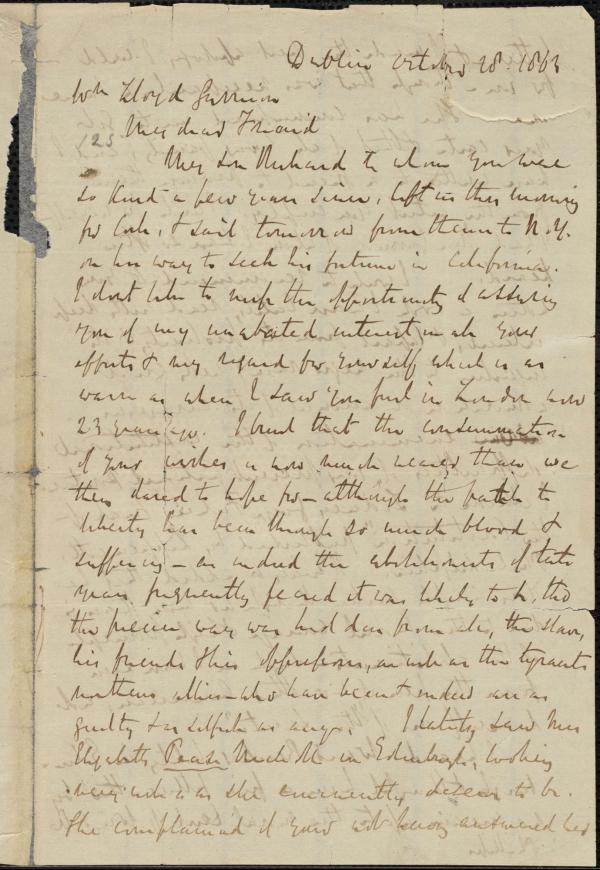 Dublin October 28. 1863
Wm Lloyd Garrison
My dear Friend
My son Richard to whom you were
so kind a few years since, left us this morning
for Cork, & sails tomorrow from thence to N.Y.
on his way to seek his fortune in California.
I dont like to miss the opportunity of assuring
you of my unabated interest in all your
efforts & my regard for yourself which is as
warm as when I saw you first in London now
23 years ago. I trust that the consummation
of your wishes is now much nearer than we
then dared to hope for - although the path to
liberty has been through so much blood &
suffering - as indeed the abolitionists of late
years frequently feared it was likely to be, tho
the precise way was hid from all, the slave,
his friends & his oppressors, as well as the tyrants
northern allies - who have been & indeed are as
guilty & as selfish as any. I lately saw Mrs
Elizabeth Pease Nichol in Edinburgh, looking
very well as she eminently deserves to be.
She complained of your not having answered her